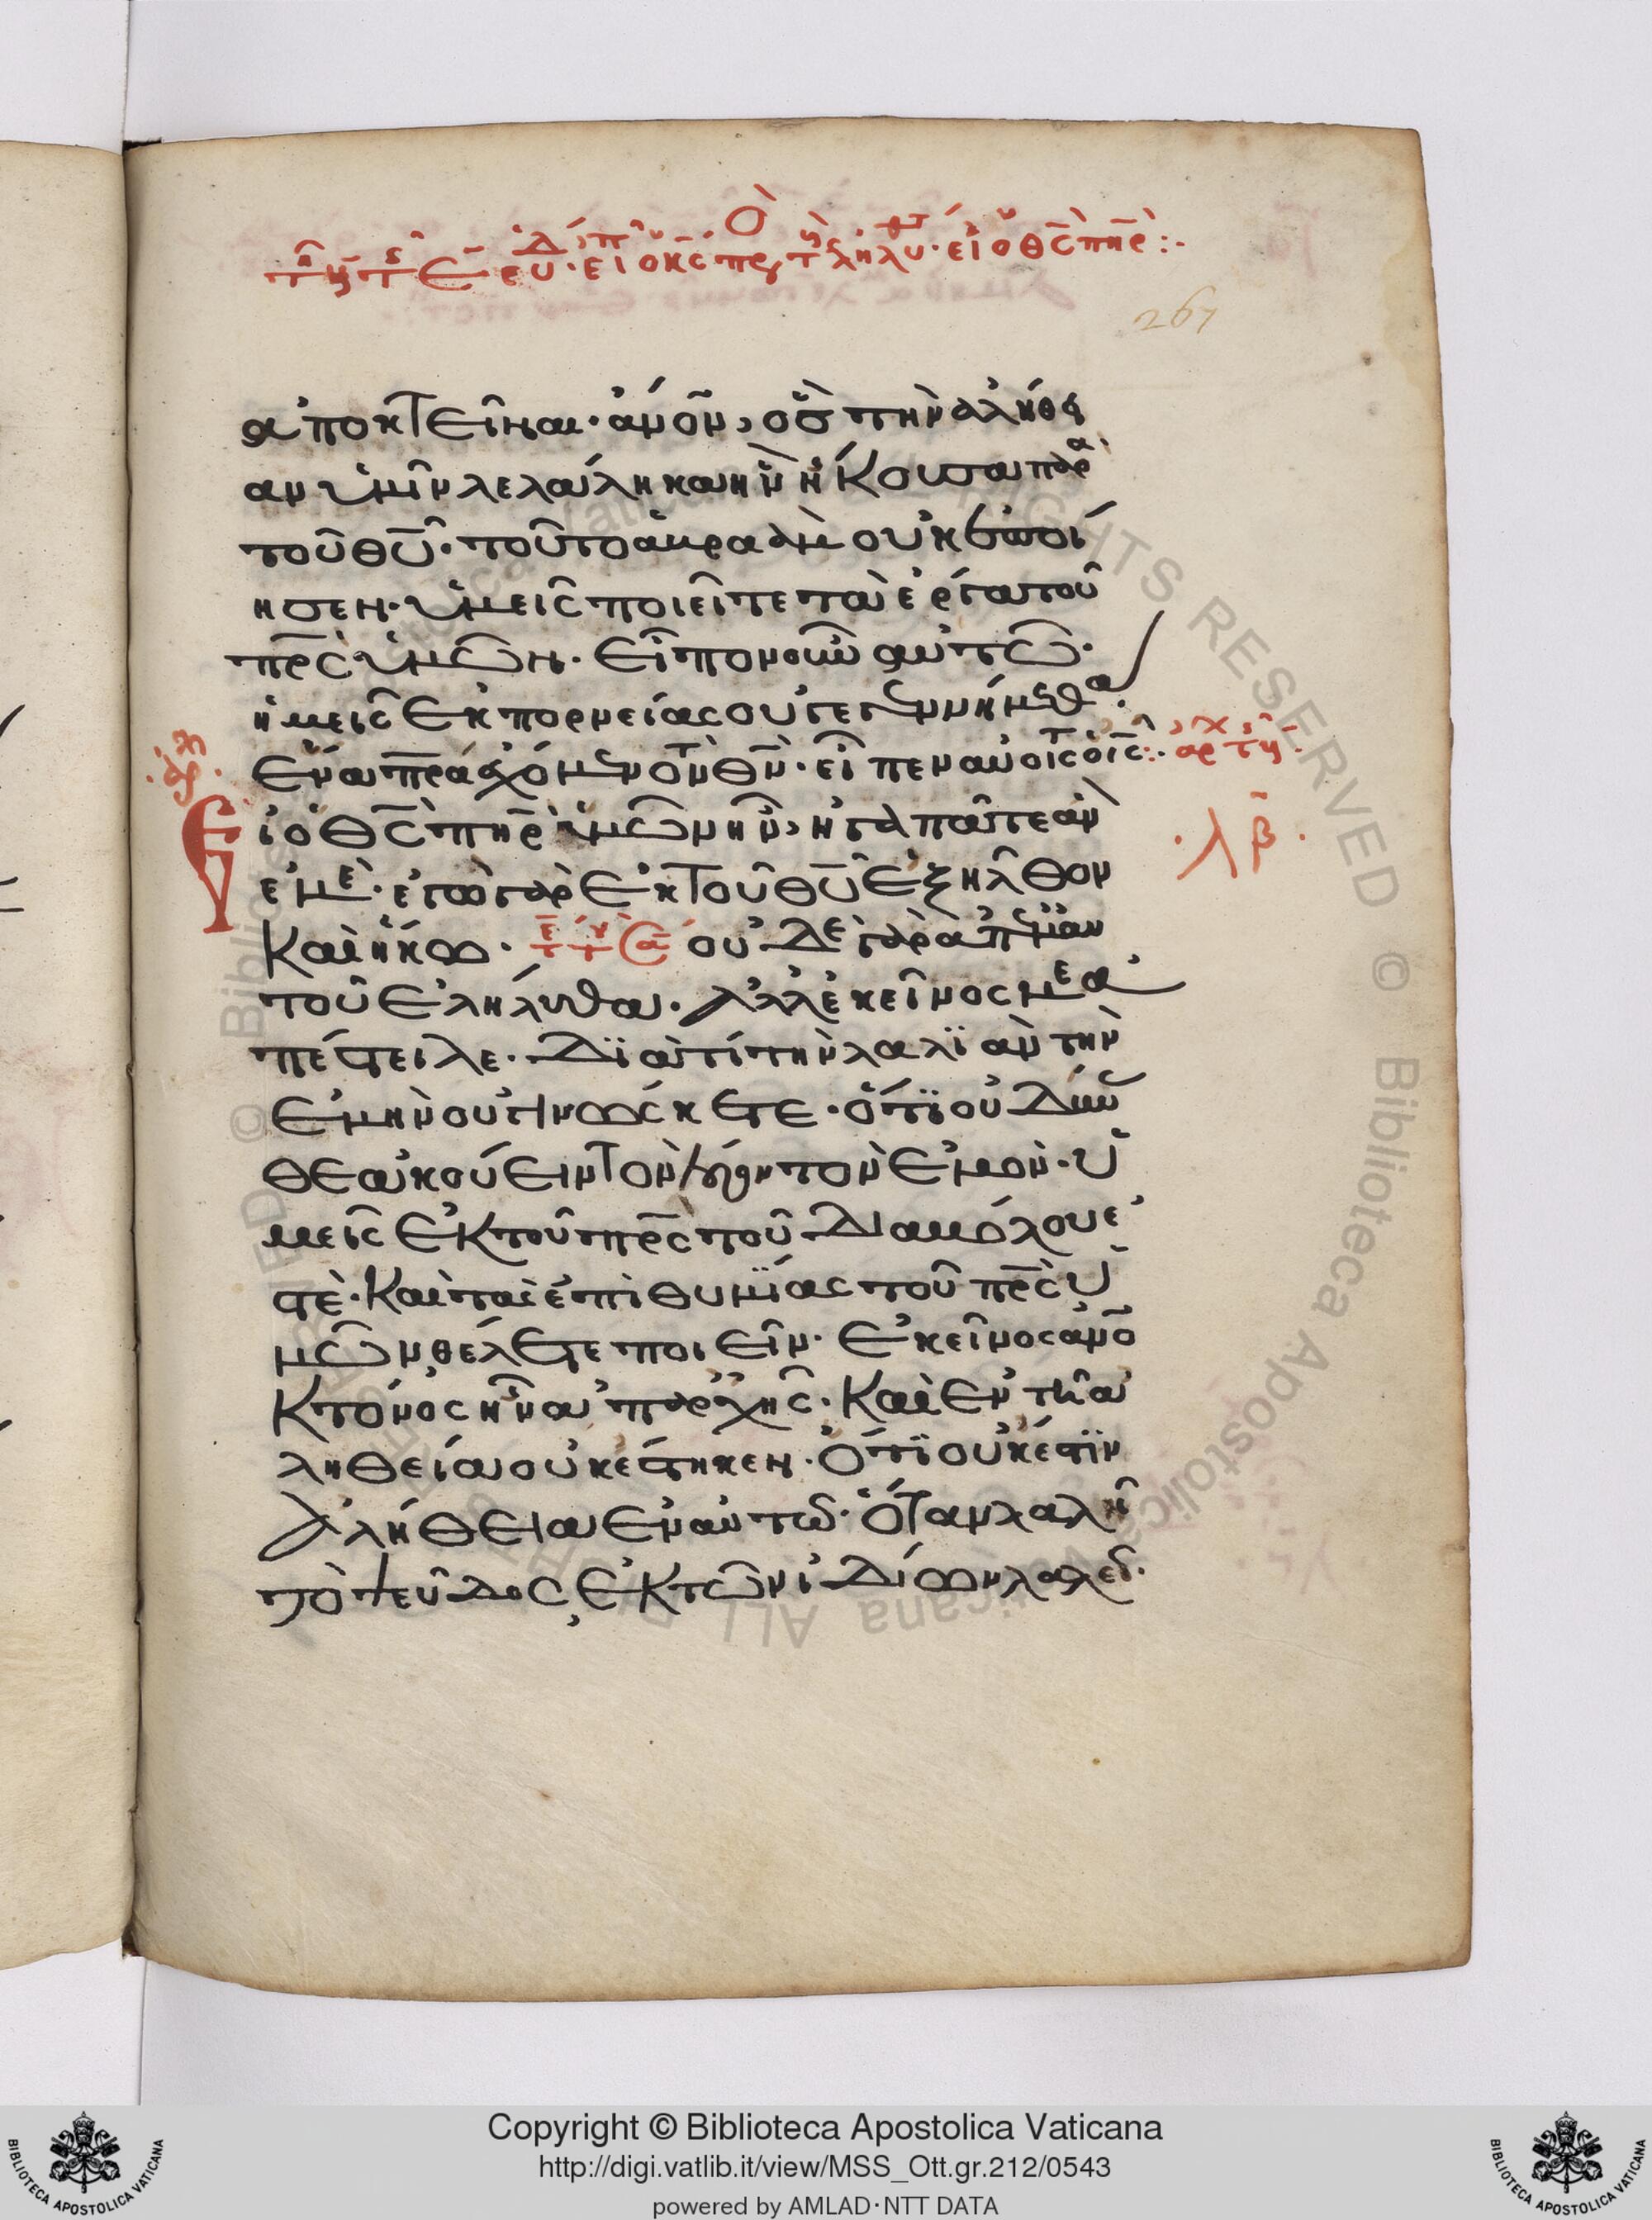 267
ἀποκτεῖναι· ἄνον, ὃς τὴν ἀλήθει
αν ὑμῖν λελάληκα ἣν ἤκουσα παρα
τοῦ θυ· τοῦτο ἀβραὰμ οὐκ ἐποί
ησεν· ὑμεῖς ποιεῖτε τὰ ἔργα τοῦ
πρς ὑμῶν. εἶπον οὖν αὐτῶ·
ἡμεῖς ἐκ πορνείας οὐ γεγεννήμεθα.
ἕνα πρα ἔχομεν τὸν θν· εἶπεν αὐτοῖς ὁ ις:· ἀρχ τῆς
εἰ ὁ θς πηρ ὑμῶν ἦν, ἠγαπᾶτε ἂν
·λβ·
ἐμέ· ἐγὼ γὰρ ἐκ τοῦ θυ ἐξῆλθον
καὶ ἥκω· οὐδὲ γὰρ ἀπ' ἐμαυ
τοῦ ἐλήλυθα. ἀλλ' ἐκεῖνός με ἀ
πέστειλε. διατί τὴν λαλιὰν τὴν
ἐμὴν οὐ γινώσκετε· ὅτι οὐ δύνα
σθε ἀκούειν τὸν λόγον τὸν ἐμόν· ὑ
μεῖς ἐκ τοῦ πρς τοῦ διαβόλου ἐ
στὲ· καὶ τὰς ἐπιθυμίας τοῦ πρς ὑ
μῶν θέλετε ποιεῖν· ἐκεῖνος ἀνο
κτόνος ἦν ἀπαρχῆς. καὶ ἐν τῆ ἀ
ληθεία οὐκ ἕστηκεν. ὅτι οὐκ ἔστιν
ἀλήθεια ἐν αὐτῶ· ὅταν λαλῆ
τὸ ψεῦδος, ἐκ τῶν ἰδίων λαλεῖ·
Copyright © Biblioteca Apostolica Vaticana
http://digi.vatlib.it/view/MSS_Ott.gr.212/0543
powered by AMLAD·NTT DATA
BIBLIOTECA APOSTOLICA VATICANA
BIBLIOTECA APOSTOLICA VATICANA